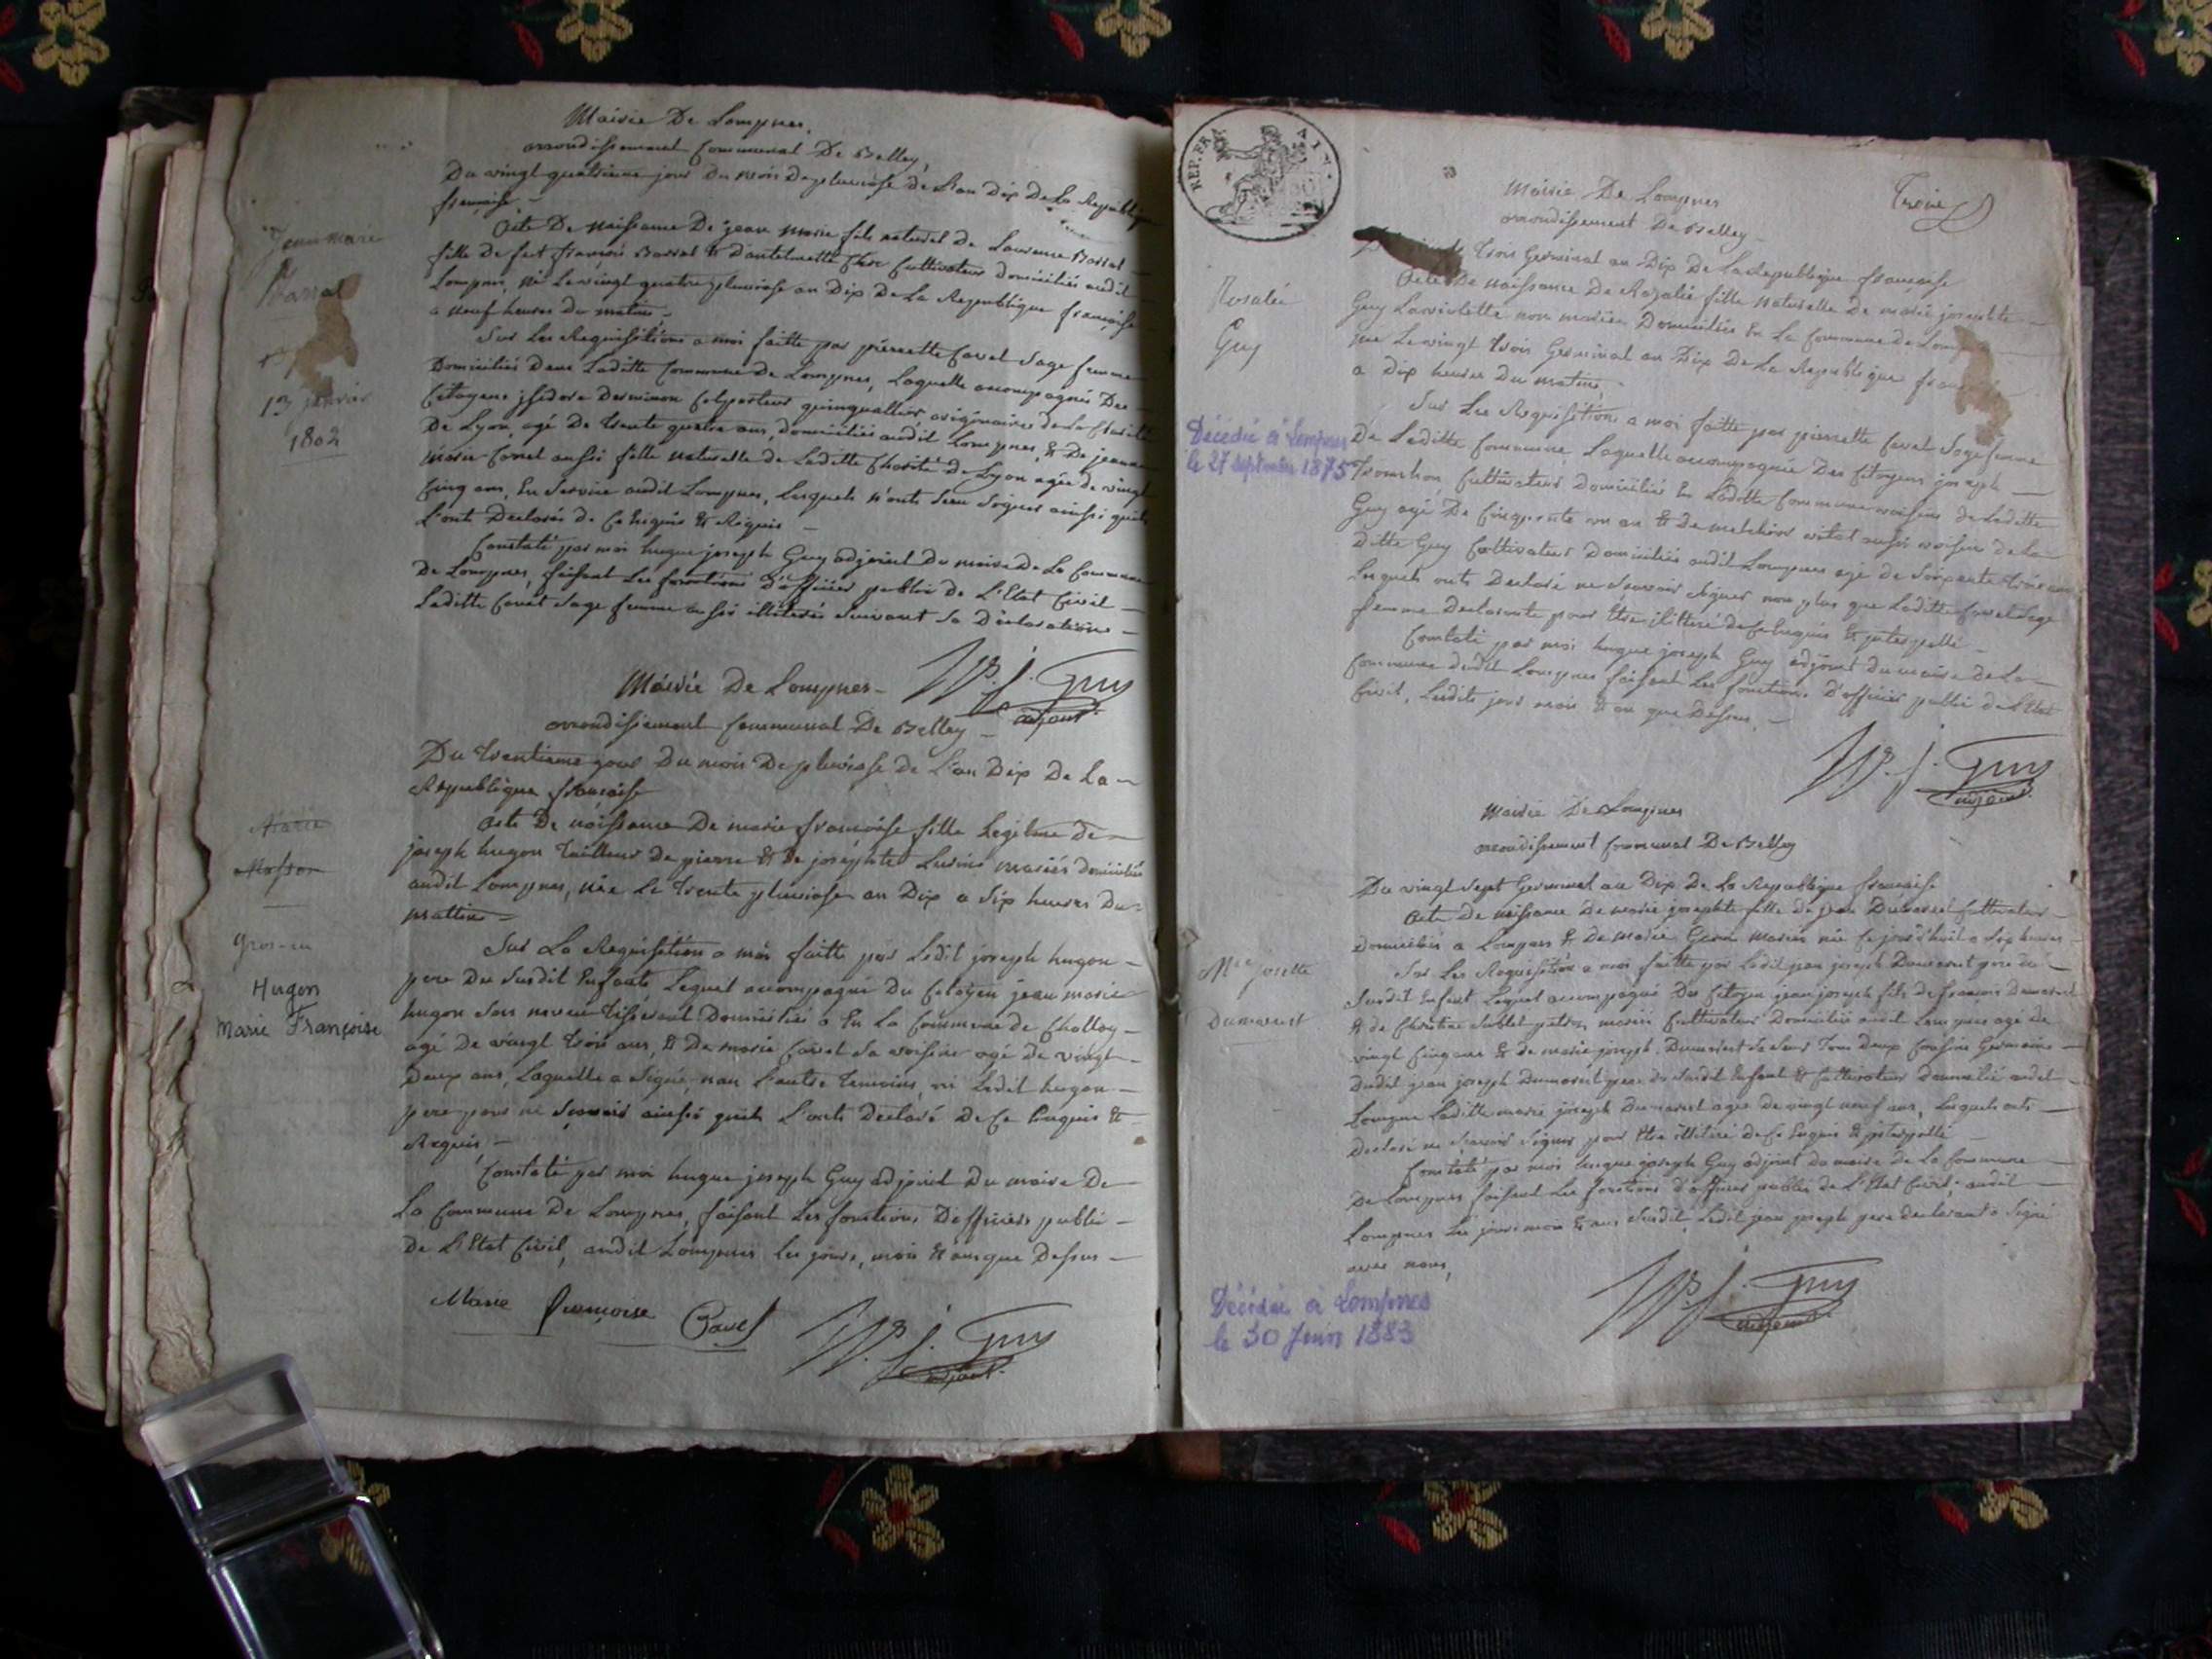 Mairie De Lompnes,
arrondissement Communal De Belley,
Du vingt quatrieme jour Du mois De pluviose de L'an Dix De La Republique
francaise
Acte De naissance De jean marie fils naturel de Laurence Barral
fille de feu francois Barral & D'antelmette domiciliés audit
Lompnes, né Le vingt quatre pluviose an Dix De La Republique francaise
a neuf heures du matin
Sur Les Requisitions a moi faitte par pierrette Cavet Sage femme
Domiciliée Dans Laditte Commune De Lompnes, Laquelle accompagnée Des
Citoyens isidore Colporteur originaire de La Charité
De Lyon, agé De trente quatre ans, domicilié audit Lompnes, & De jeanne
marie aussi fille naturelle de Laditte Charité De Lyon agée de vingt
Cinq ans, En Service audit Lompnes, Lesquels n'ont Sceu Signer ainsi qu'ils
L'ont Declarés de Ce Enquis & Requis
Constaté par moi hugue joseph Guy adjoint Du maire De La Commune
De Lompnes, faisant Les fonctions D'officier public de L'Etat Civil
Laditte Cavet Sage femme aussi illiterée Suivant Sa Declaration
H. j. Guy
adjoint
Jean marie
Barral
13 janvier
1802
Mairie De Lompnes
arrondissement Communal De Belley
Du trentieme jour Du mois De pluviose de L'an Dix De La
Republique francaise
Acte De naissance De marie francoise fille Legitime de
joseph hugon tailleur de pierre & de josephte mariés domiciliés
audit Lompnes, née Le trente pluviose an Dix a Six heures Du
mattin
Sur La Requisition a moi faitte par Ledit joseph hugon
pere Du Susdit Enfant, Lequel accompagné Du Citoyen jean marie
hugon Son neveu tisserant Domicilié a En La Commune de Challey
agé De vingt trois ans, & De marie Cavet Sa voisine agé De vingt
Deux ans, Laquelle a Signé, non L'autre temoins, ni Ledit hugon
pere pour ne Scavoir ainsi qu'ils L'ont Declaré De Ce Enquis &
Requis
Constaté par moi hugue joseph Guy adjoint Du maire De
La Commune De Lompnes, faisant Les fonctions D'officier public
De L'Etat Civil, audit Lompnes Les jours, mois & an que Dessus
Marie françoise Cavet
H. j. Guy
adjoint
Marie
Hugon
Marie Françoise
REP. FR.
AIN
Mairie De Lompnes
arrondissement De Belley
trois Germinal an Dix De La Republique francaise
Acte De naissance De Rozalie fille naturelle De marie josephte
Guy non mariée Domiciliée En La Commune de
née Le vingt trois Germinal an Dix De La Republique
a Dix heures Du matin
Sur Les Requisition a moi faitte par pierrette Cavet Sage femme
De Laditte Commune, Laquelle accompagnée Des Citoyens joseph
Cultivateur Domicilié En Laditte Commune voisin de Laditte
Guy agé De Cinquante un an & de melchior vital aussi voisin De La
Ditte Guy Cultivateur Domicilié audit Lompnes agé de Soixante trois ans
Lesquels ont Declaré ne Scavoir Signer non plus que Laditte Cavet Sage
femme Declarante pour Etre illiteré de Ce Enquis & interpellé
Constaté par moi hugue joseph Guy adjoint du maire de La
Commune dudit Lompnes faisant Les fonctions D'officier public de L'Etat
Civil, Lesdits jour mois & an que Dessus
H. j. Guy
adjoint
Rosalie
Guy
Décédée à Lompnes
le 27 septembre 1875
Mairie De Lompnes
arrondissement Communal De Belley
Du vingt Sept Germinal an Dix De La Republique francaise
Acte De naissance De marie josephte fille de jean Dumarest Cultivateur
Domiciliés a Lompnes & De marie mariés née Ce jourd'huit a Six heures
Sur Les Requisition a moi faitte par Ledit jean joseph Dumarest pere du
Susdit Enfant Lequel accompagné Du Citoyen jean joseph fils de francois Dumarest
& de Christine mariés Cultivateur Domicilié audit Lompnes agé De
vingt Cinq ans & de marie joseph Dumarest Sa Soeur Tous Deux Cousins Germains
Dudit jean joseph Dumarest pere du Susdit Enfant & Cultivateur Domicilié audit
Lompne Laditte marie joseph Dumarest agée De vingt neuf ans, Lesquels ont
Declaré ne Scavoir Signer pour Etre illiteré de Ce Enquis & interpellé
Constaté par moi hugue joseph Guy adjoint du maire de La Commune
De Lompnes faisant Les fonctions d'officier public de L'Etat Civil, audit
Lompnes Les jour mois & ans Susdit, Ledit jean joseph pere declarant a Signé
avec nous,
H. j. Guy
adjoint
Mie josette
Dumarest
Décédée à Lompnes
le 30 Juin 1883